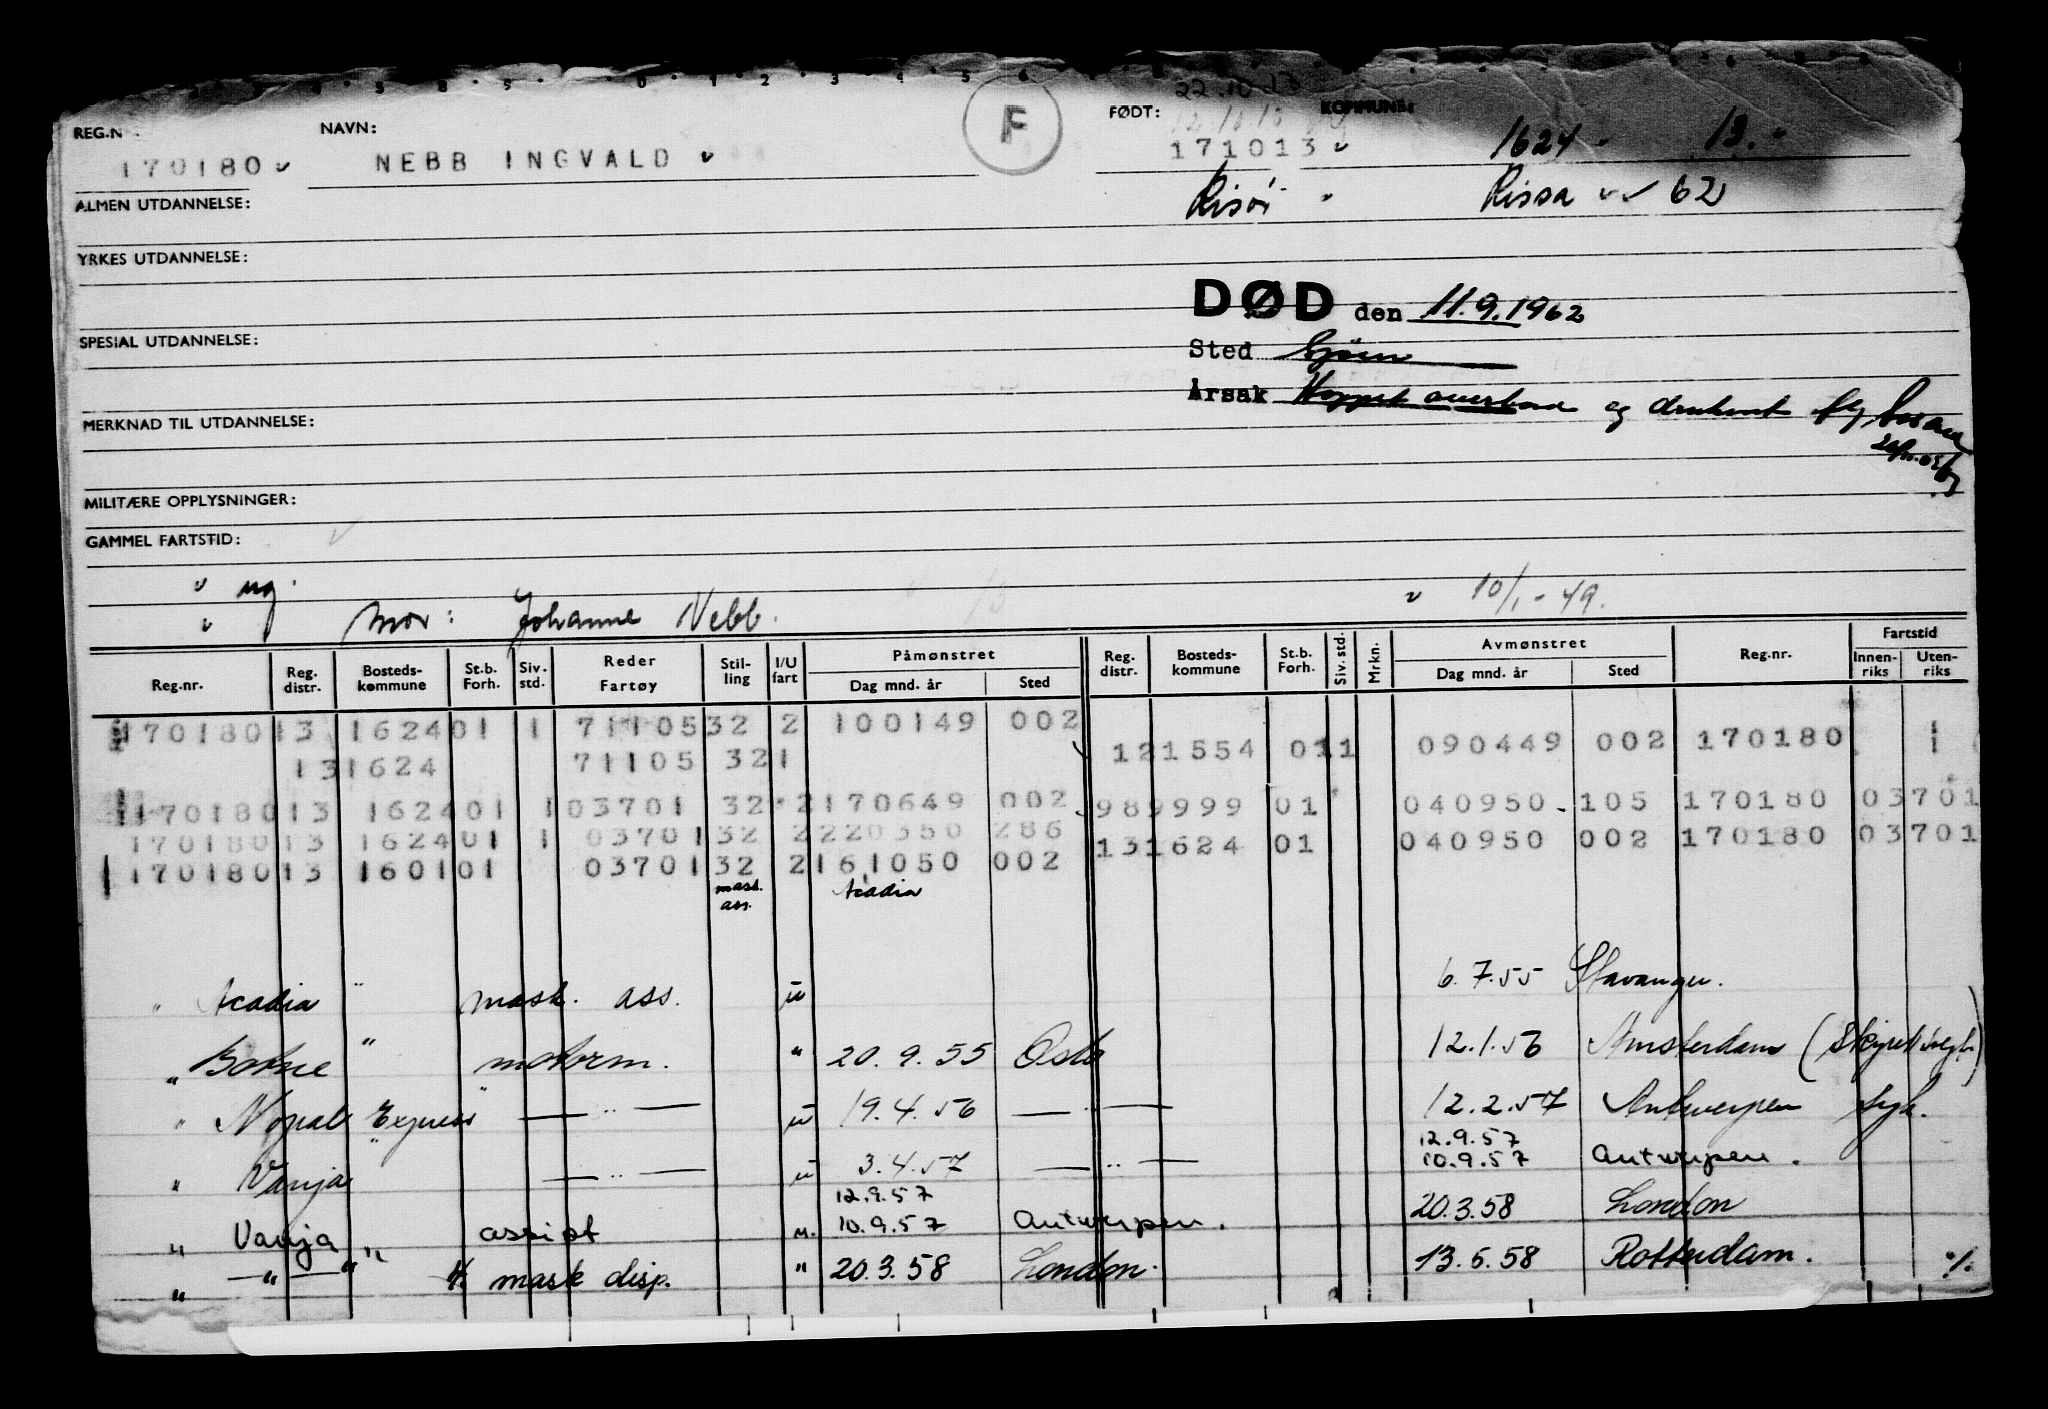 22.10.13
REG.N NAVN: F FØDT: KOMMUNE:
170180 NEBB INGVALD 171013 1624 13.
ALMEN UTDANNELSE: Risör Rissa 62
YRKES UTDANNELSE:
DØD den 11.9.1962
SPESIAL UTDANNELSE:
Sted
Årsak Hoppet overbord og druknet
MERKNAD TIL UTDANNELSE:
MILITÆRE OPPLYSNINGER:
GAMMEL FARTSTID:
ug. 10/1-49.
Mor: Johanne Nebb.
Reg.nr. Reg. distr. Bosteds-kommune St.b. Forh. Siv. std. Reder Fartøy Stil-ling I/U fart Påmønstret Dag mnd. år Sted Reg. distr. Bosteds-kommune St.b. Forh. Siv. std. Mrkn. Avmønstret Dag mnd. år Sted Reg.nr. Fartstid Innen-riks Uten-riks
170180 13 1624 01 1 71105 32 2 100149 002
13 1624 71105 32 1 12 1554 01 1 090449 002 170180 1
170180 13 1624 01 1 03701 32 2 170649 002 98 9999 01 040950 105 170180 03701
170180 13 1624 01 1 03701 32 2 220350 286 13 1624 01 040950 002 170180 03701
170180 13 1601 01 03701 32 2 161050 002
mask. ass. Acadia
" Acadia " mask. ass. u 6.7.55 Stavanger.
" " motorm. " 20.9.55 Oslo 12.1.56 Amsterdam
" Nopal Express " — " — u 19.4.56 — " — 12.2.57 Antwerpen syk.
12.9.57
" Vanja " — " — u 3.4.57 — " — 10.9.57 Antwerpen.
12.9.57
" Vanja " assist u. 10.9.57 Antwerpen. 20.3.58 London
" — " — " mask disp. " 20.3.58 London. 13.6.58 Rotterdam. %.